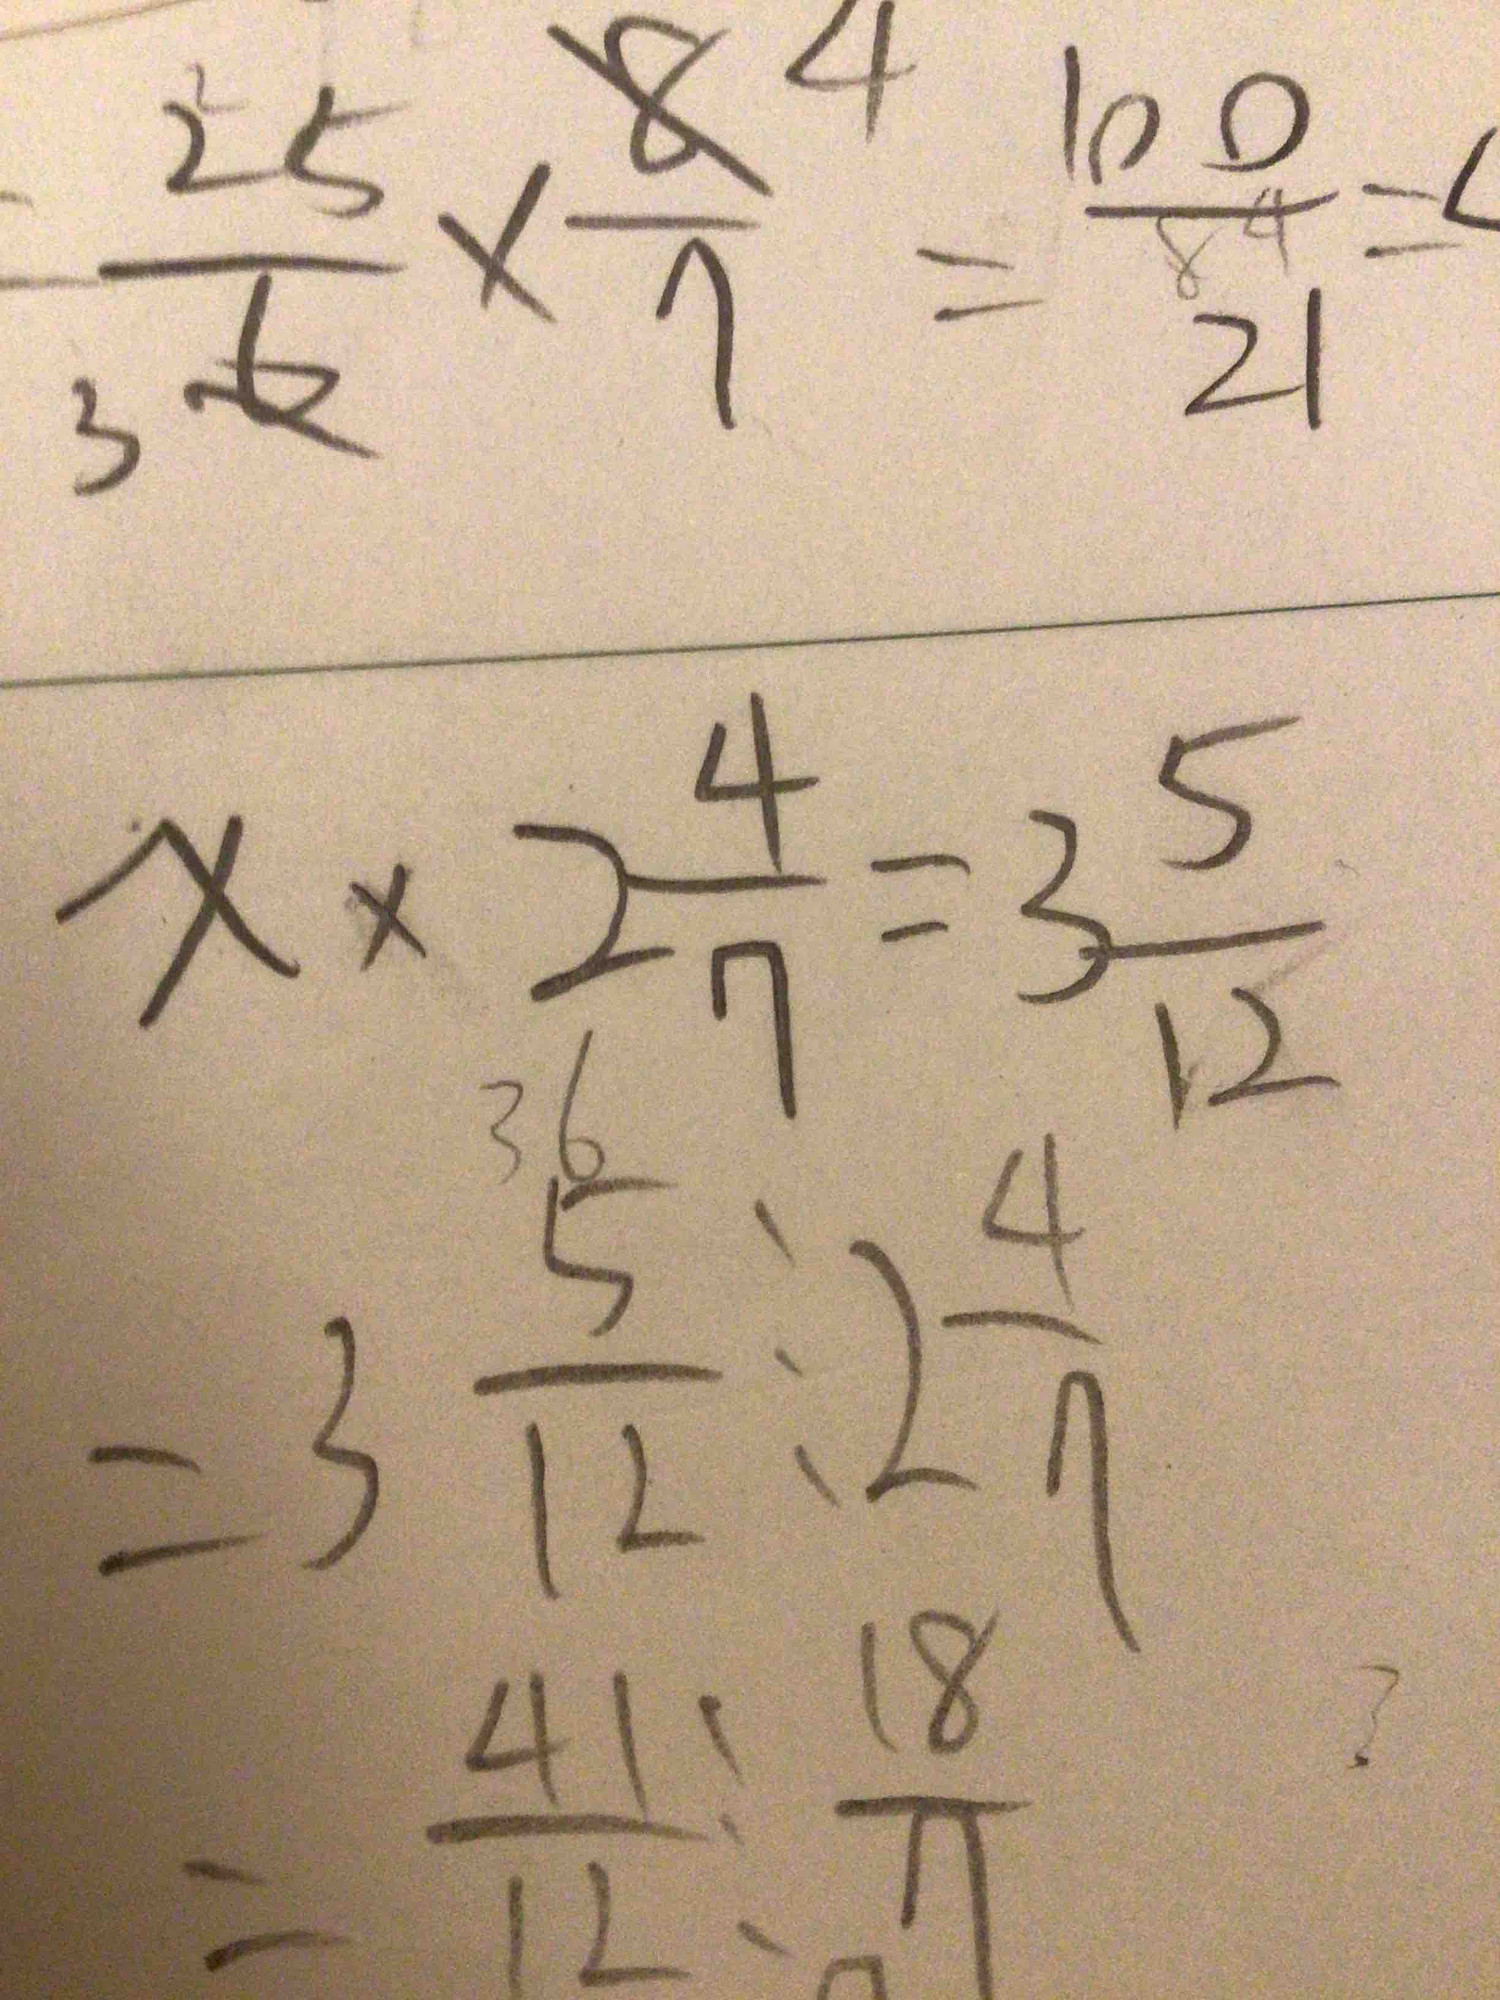 = 25/6 × 8/7 4 = 100/21 =
3
84
x × 2 4/7 = 3 5/12
36
= 3 5/12 ÷ 2 4/7
= 41/12 ÷ 18/7
?